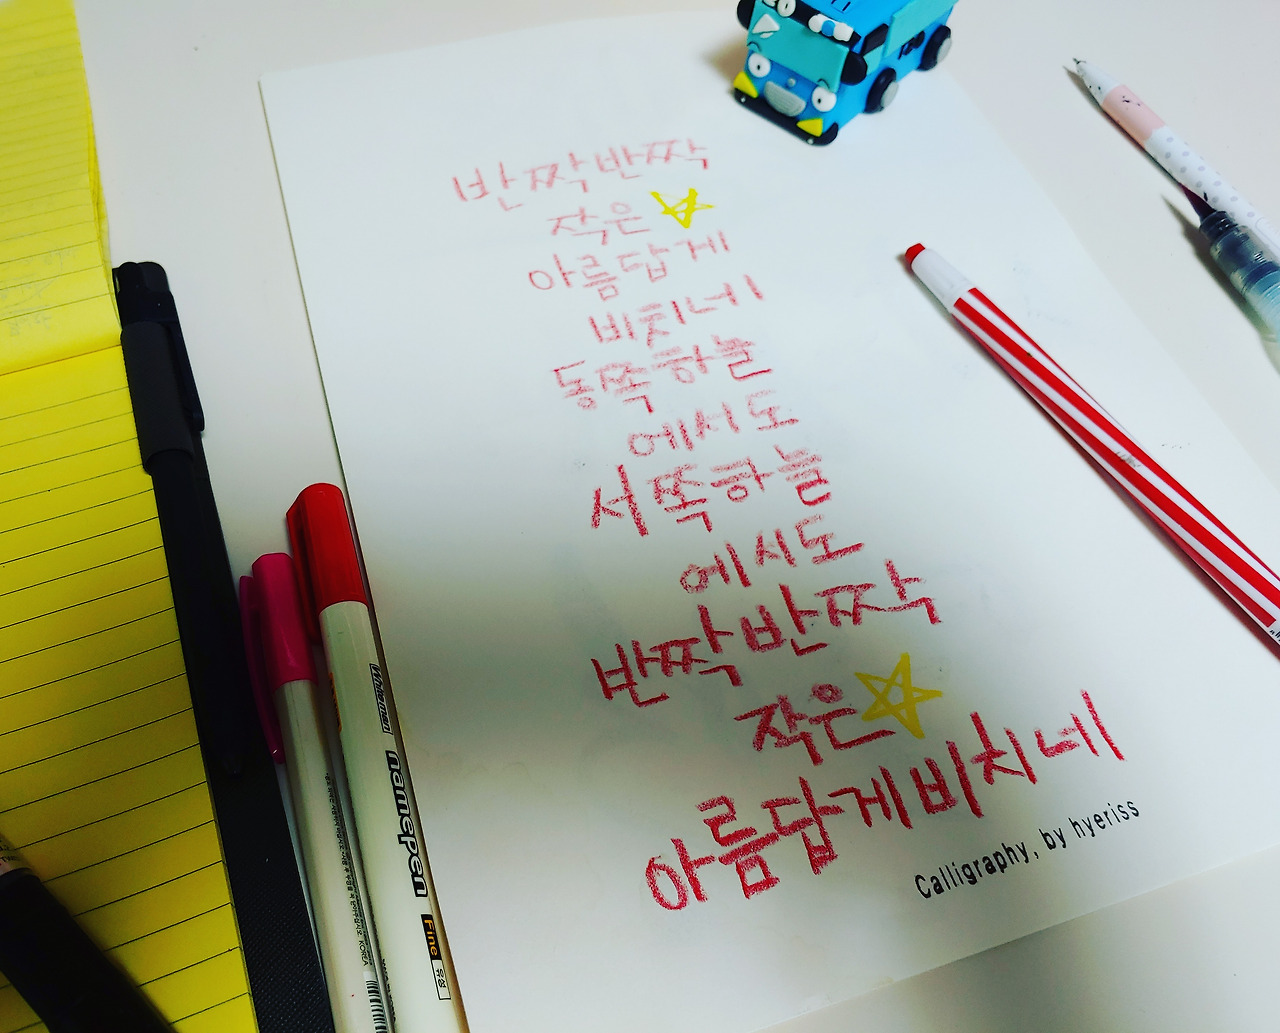 반짝반짝
작은☆
아름답게
비치네
동쪽하늘
에서도
서쪽하늘
에서도
반짝반짝
작은☆
아름답게비치네
Calligraphy, by hyeriss
Writemen
namepen
Fine
유성